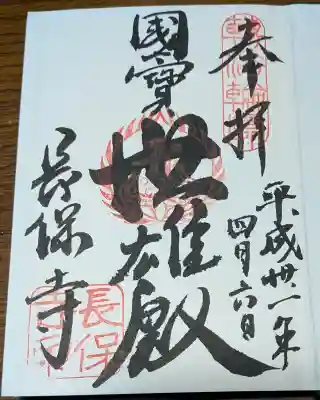 奉拝
平成廿一年
四月六日
國寳
世雄殿
長保寺
長保